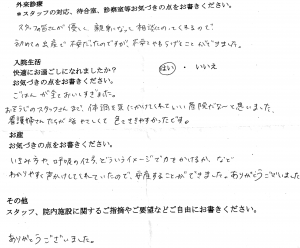 外来診療
*スタッフの対応、待合室、診察室等お気づきの点をお書きください。
スタッフ皆さんが優しく、親身になって相談にのってくれるので
初めての出産で不安だったのですが、不安をやわらげることができました。
入院生活
快適にお過ごしになれましたか?　はい　・　いいえ
お気づきの点をお書きください。
ごはんが全ておいしすぎました。
おそうじのスタッフさんまで、体調を気にかけてくれていい産院だなーと思いました、
看護師さんたちが皆やさしくて色々ききやすかったです。
お産
お気づきの点をお書きください。
いきみ方や、呼吸の仕方、どういうイメージで力をかけるか、など
わかりやすく声かけしてくれていたので、安産することができました。ありがとうございました
その他
スタッフ、院内施設に関するご指摘やご要望などご自由にお書きください。
ありがとうございました。